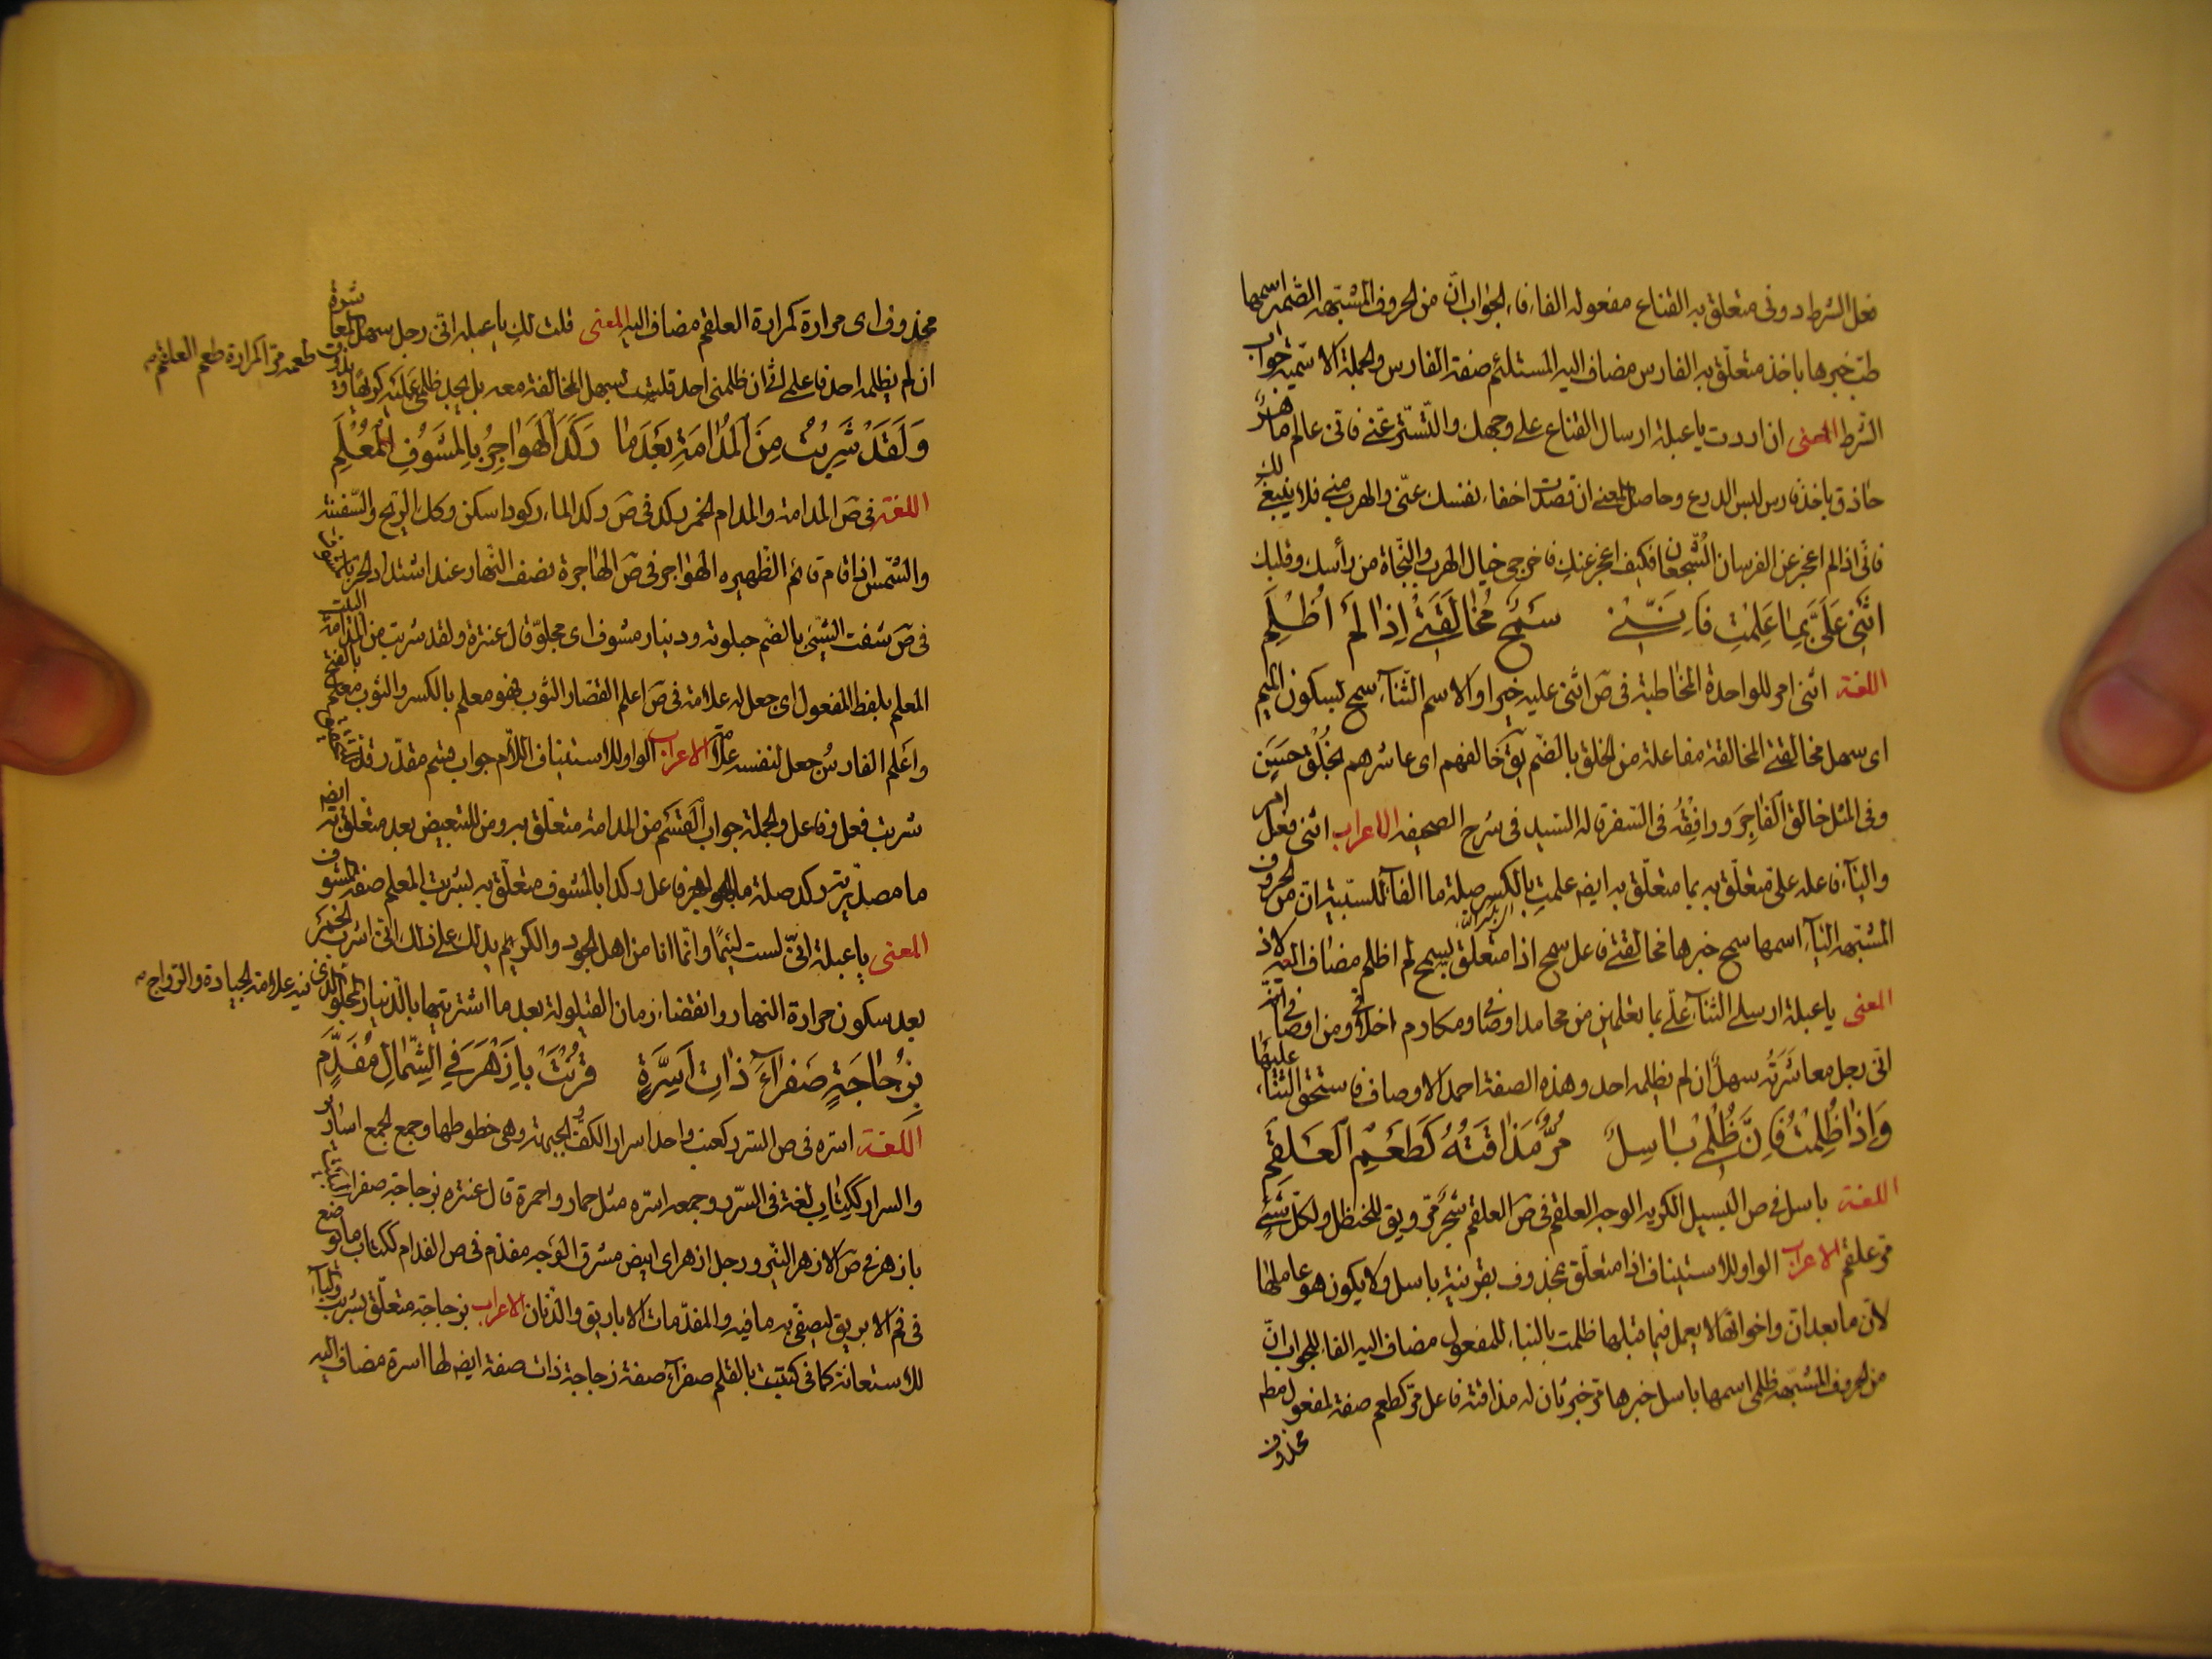 فعل الشرط دونى متعلق به القناع مفعوله الفاء فاء الجواب انّ من الحروف المشبّهه الضّمير اسمها
طبّ خبرها باخذ متعلّق به الفارس مضاف اليه المستلئم صفة الفارس والجملة الاسميه جواب
الشرط المعنى ان اردت ياعبلة ارسال القناع على وجهك والتّستّر عنّى فانى عالم ماهر
حاذق باخذ فارس لبس الدرع وحاصل المعنى ان قصدت اخفاء نفسك عنّى والهرب منى فلا ينبغى لك
فانّى اذا لم اعجز عن الفرسان الشّجعان فكيف اعجز عنك فاخرجى خيال الهرب والنّجاة من رأسك وقلبك
اَثْنِى عَلَىَّ بِمَا عَلِمْتِ فَاِنَّنِى سَمْحٌ مُخَالَقَتِى اِذَا لَمْ اُظْلَمِ
اللغة اثنى امر للواحدة المخاطبة فى ص اثنى عليه خيرا والاسم الثّناء سمح بسكون الميم
اى سهل مخالقتى المخالقة مفاعلة من الخلق بالضّم يق خالقهم اى عاشرهم بخُلْق حَسَنٍ
وفى المثل خالق الفَاجِرَ ورافِقْهُ فى السّفر قاله السّيد فى شرح الصحيفه الاعراب اثنى فعل امر
والياء فاعله علىّ متعلّق به بما متعلّق به ايضه علمتِ بالكسر صلة ما الفاء للسّببيّة انّ من الحروف
المشبّهه الياء اسمها سمح خبرها مخالقتى فاعل سمح اذا متعلّق بسمح لم اظلم مضاف اليه لاذا
المعنى ياعبلة ارسلى الثناء علىّ بما تعلمين من محامد اوصافى ومكارم اخلاقى ومن اوصافى
انّى رجل معاشَرَتُه سهلٌ ان لم يظلمه احد وهذه الصفة احمد الاوصاف فاستحق الثناء عليها
وَاِذَا ظُلِمْتُ فَاِنَّ ظُلْمِى بَاسِلٌ مُرٌّ مَذَاقَتُهُ كَطَعْمِ الْعَلْقَمِ
اللغة باسل فى ص البسيل الكريه الوجه العلقم فى ص العلقم شجر مرّ ويق للحنظل ولكلّ شىء
مرّ علقم الاعراب الواو للاستيناف اذا متعلّق بمحذوف بقرينة باسل ولا يكون هو عاملها
لانّ ما بعد انّ واخواتها لا يعمل فيما قبلها ظلمت بالبناء للمفعول مضاف اليه الفاء للجواب انّ
من الحروف المشبّهه ظلمى اسمها باسل خبرها مرّ خبر ثان له مذاقته فاعل مرّ كطعم صفة لمفعول مطلق
محذوف
محذوف اى مرارة كمرارة العلقم مضاف اليه المعنى قلت لكِ ياعبلة انّى رجل سهل المعاشرة
ان لم يظلمه احد فاعلمى انّى ان ظلمنى احد قلت بسهل المخالقة معه بل يجد ظلمى عَلَيْه كريهًا و
طعمه مرّا كمرارة طعم العلقم
وَلَقَدْ شَرِبْتُ مِنَ الْمُدَامَةِ بَعْدَ مَا رَكَدَ الْهَوَاجِرُ بِالْمَشُوفِ الْمُعْلَمِ
اللغة فى ص المدامة والمدام الخمر ركد فى ص ركد الماء ركودا سكن وكك الريح والسّفينة
والشّمس اذا قام قائم الظّهيره الهواجر فى ص الهاجرة نصف النّهار عند اشتداد الحرّ بالمشوف
فى ص شفت الشىء بالضّم جلوته ودينار مشوف اى مجلوّ قال عنترة ولقد شربت من المدامة البيت
المعلم بلفظ المفعول اى جعل له علامة فى ص اعلم القصّار الثوب فهو معلم بالكسر والثوب معلم بالفتح
واَعْلم الفارسُ جعل لنفسه علامة الاعراب الواو للاستيناف اللام جواب قسم مقدّر قد للتحقيق
شربت فعل وفاعل والجملة جواب القسم من المدامة متعلّق به ومن للتبعيض بعد متعلق به ايضه
ما مصدريّة ركد صلة ما الهواجر فاعل ركد بالمشوف متعلّق به بشربت المعلم صفة المشوف
المعنى ياعبلة انّى لست لئيمًا وانّما انا من اهل الجود والكريم يدلك على ذلك انّى اشرب الخمر
بعد سكون حرارة النهار وانقضاء زمان القيلولة بعد ما اشتريتها بالدّينار المجلوّ الذى
فيه علامة الجيادة والرّواج
بِزُجَاجَةٍ صَفْرَاءَ ذَاتِ اَسِرَّةٍ قُرِنَتْ بِاَزْهَرَ فِى الشِّمَالِ مُفَدَّمِ
اللغة اسرّه فى ص السرر كعنب واحد اسرار الكفّ والجبهة وهى خطوطها وجمع الجمع اسارير
والسرار ككِتَاب لغة فى السّرر وجمعه اسرّه مثل حمار واحمرة قال عنتره بزجاجة صفراء البيت
بازهر فى ص الازهر النّير ورجل ازهر اى ابيض مشرق الوجه مفدّم فى ص الفدام ككتاب ما يوضع
فى فم الابريق ليصفّى به ما فيه والمفدّمات الاباريق والدّنان الاعراب بزجاجة متعلّق بشربت والباء
للاستعانة كما فى كتبت بالقلم صفراء صفة زجاجة ذات صفة ايضه لها اسرة مضاف اليه